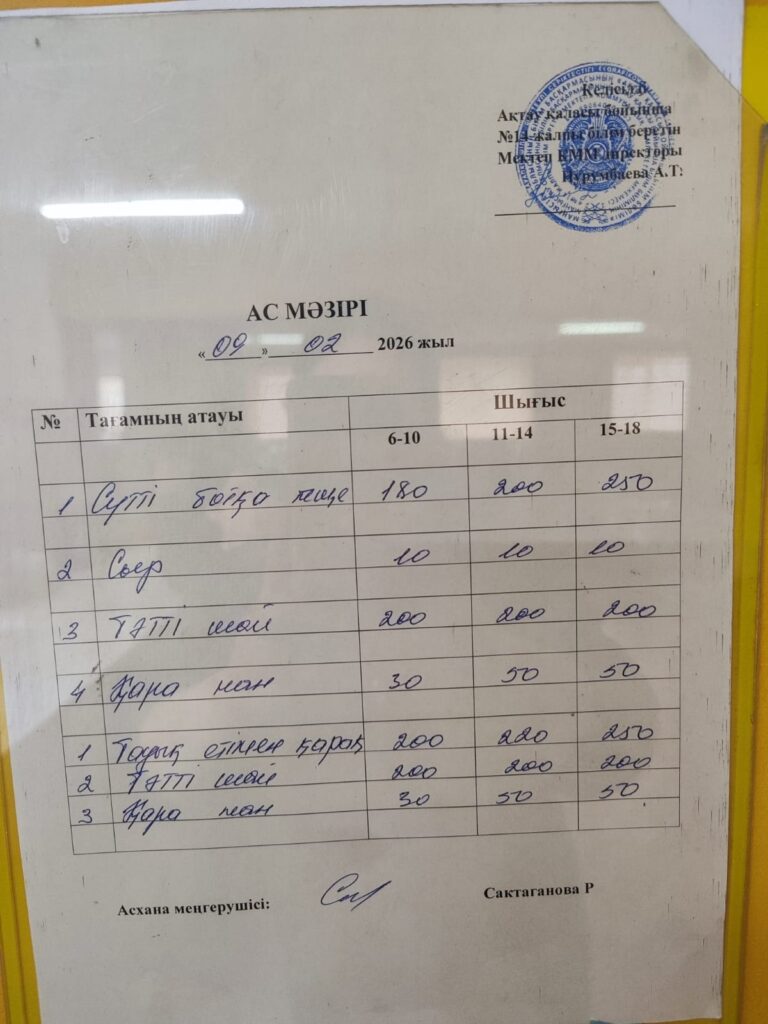 Келісілді
Ақтау қаласы бойынша
№11 жалпы білім беретін
Мектеп КММ директоры
Нурумбаева А.Т:
АС МӘЗІРІ
« 09 » 02 2026 жыл
№ Тағамның атауы Шығыс
6-10 11-14 15-18
1 Сүтті ботқа 180 200 250
2 Сыр 10 10 10
3 Тәтті шай 200 200 200
4 Қара нан 30 50 50
1 Тауық етімен 200 220 250
2 Тәтті шай 200 200 200
3 Қара нан 30 50 50
Асхана меңгерушісі: Сактаганова Р